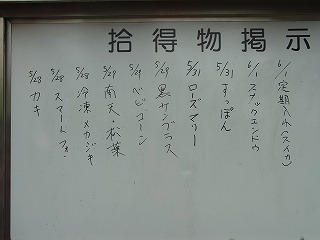 拾得物掲示
6/1 定期入れ(スイカ)
6/1 スナックエンドウ
5/31 すっぽん
5/31 ローズマリー
5/29 黒サングラス
5/29 ベビーコーン
5/29 南天・松葉
5/28 冷凍メカジキ
5/28 スマートフォン
5/28 カギ